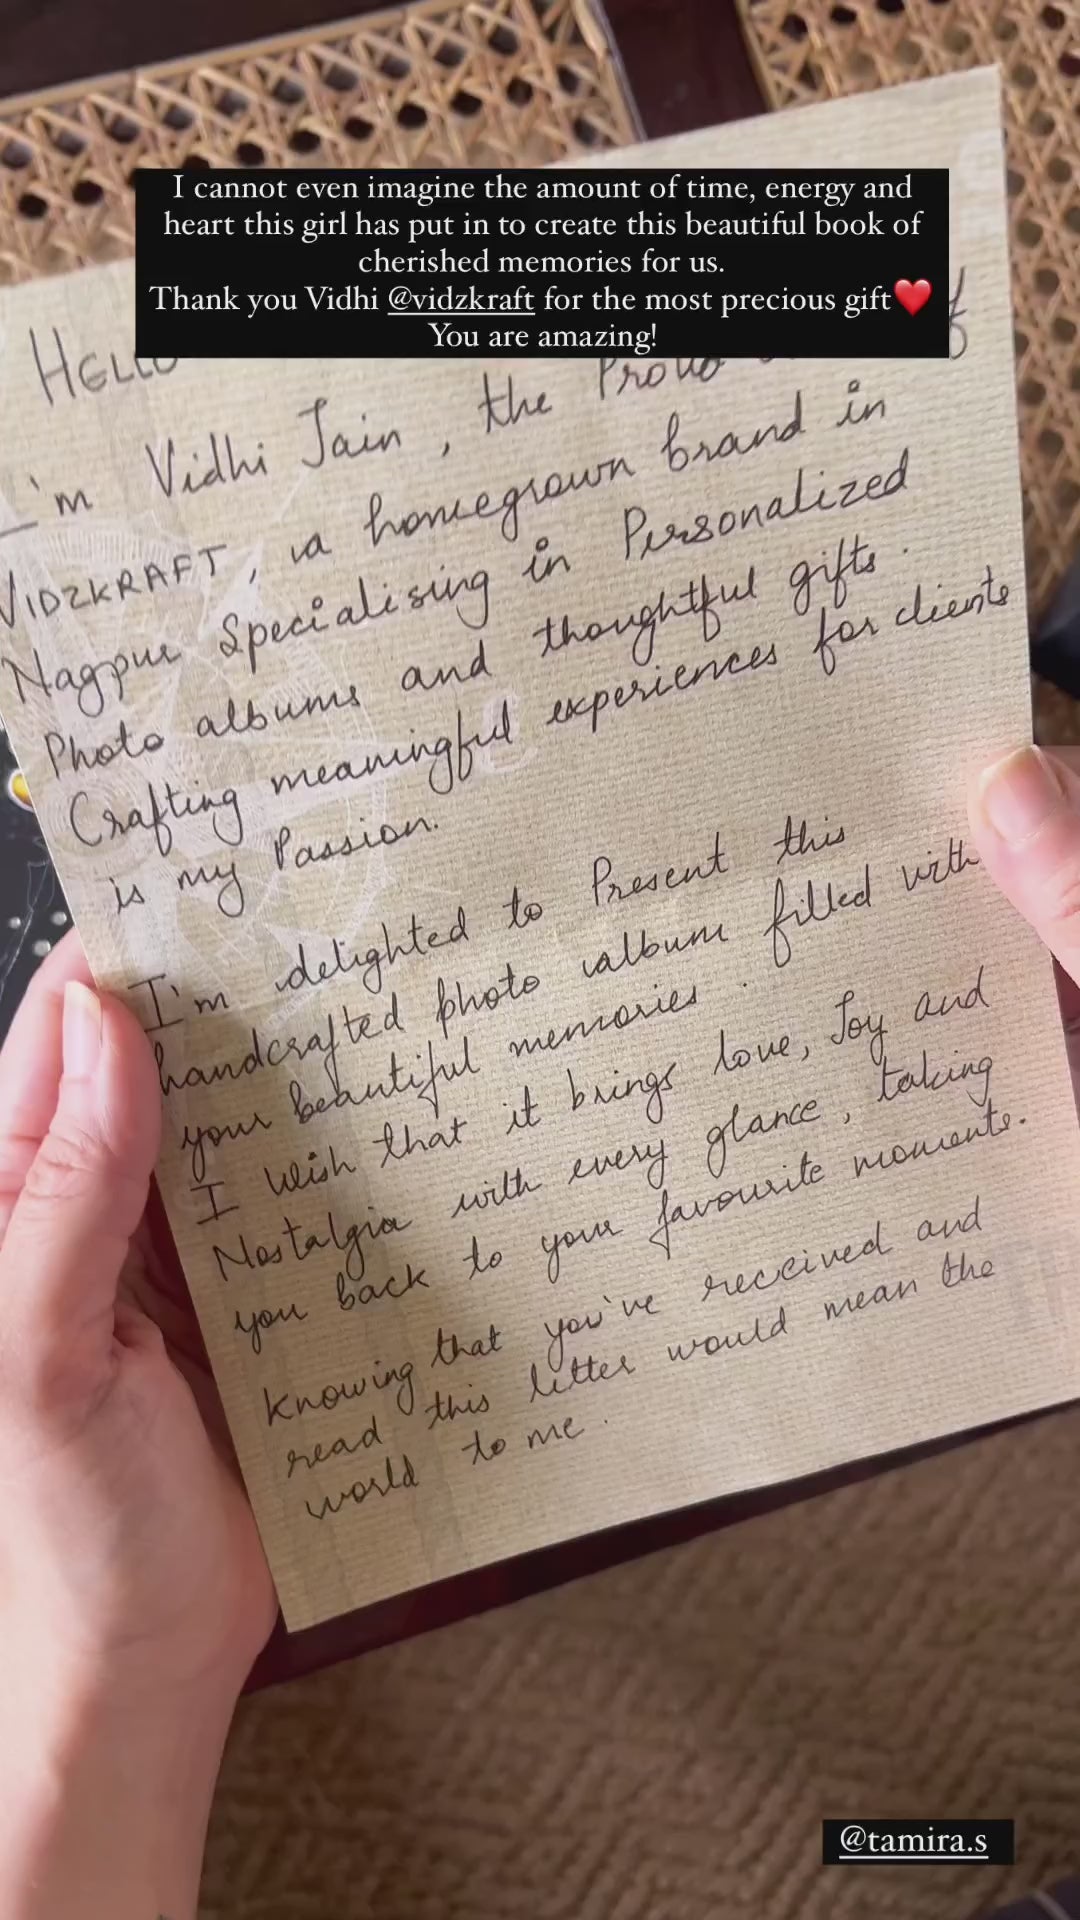 I cannot even imagine the amount of time, energy and
heart this girl has put in to create this beautiful book of
cherished memories for us.
Thank you Vidhi @vidzkraft for the most precious gift❤️
You are amazing!
HELLO
I'm Vidhi Jain, the Proud
VIDZKRAFT, a homegrown brand in
Nagpur Specialising in Personalized
Photo albums and thoughtful gifts.
Crafting meaningful experiences for clients
is my Passion.
I'm delighted to Present this
handcrafted photo album filled with
your beautiful memories.
I wish that it brings love, Joy and
Nostalgia with every glance, taking
you back to your favourite moments.
Knowing that you've received and
read this letter would mean the
world to me.
@tamira.s